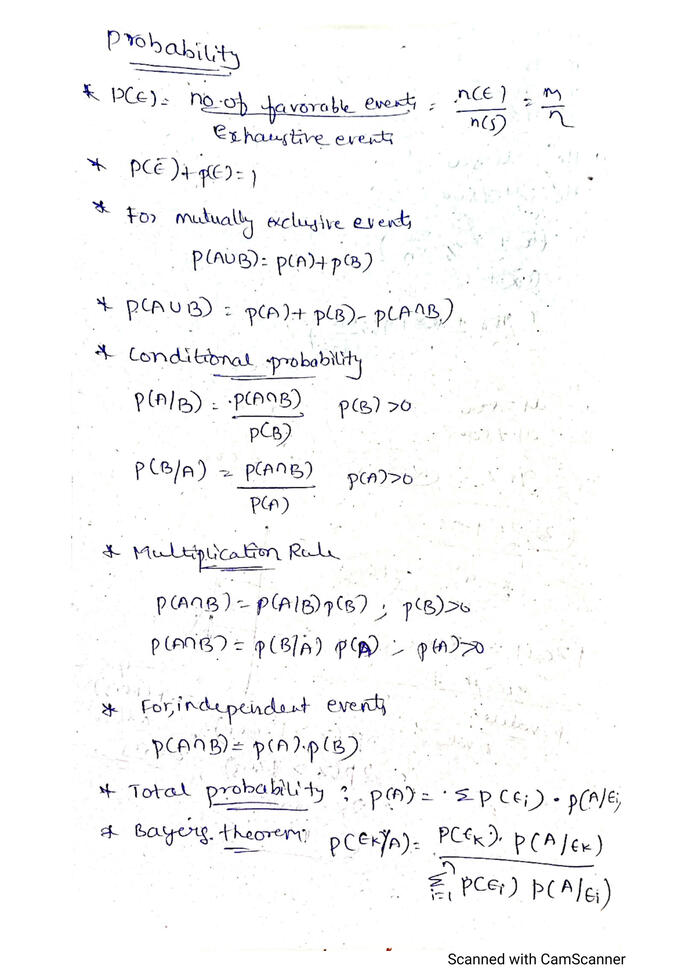 Probability
* P(E) = no. of favorable events / Exhaustive events = n(E) / n(S) = m / n
* P(Ē) + P(E) = 1
* For mutually exclusive events
P(A∪B) = P(A) + P(B)
* P(A∪B) = P(A) + P(B) - P(A∩B)
* Conditional probability
P(A/B) = P(A∩B) / P(B) P(B) >0
P(B/A) = P(A∩B) / P(A) P(A)>0
* Multiplication Rule
P(A∩B) = P(A/B) P(B) ; P(B)>0
P(A∩B) = P(B/A) P(A) ; P(A)>0
* For, independent events
P(A∩B) = P(A).P(B)
* Total probability : P(A) = Σ P(Ei) . P(A/Ei)
* Bayers theorem: P(Ek/A) = P(Ek). P(A/Ek) / Σ i=1 n P(Ei) P(A/Ei)
Scanned with CamScanner